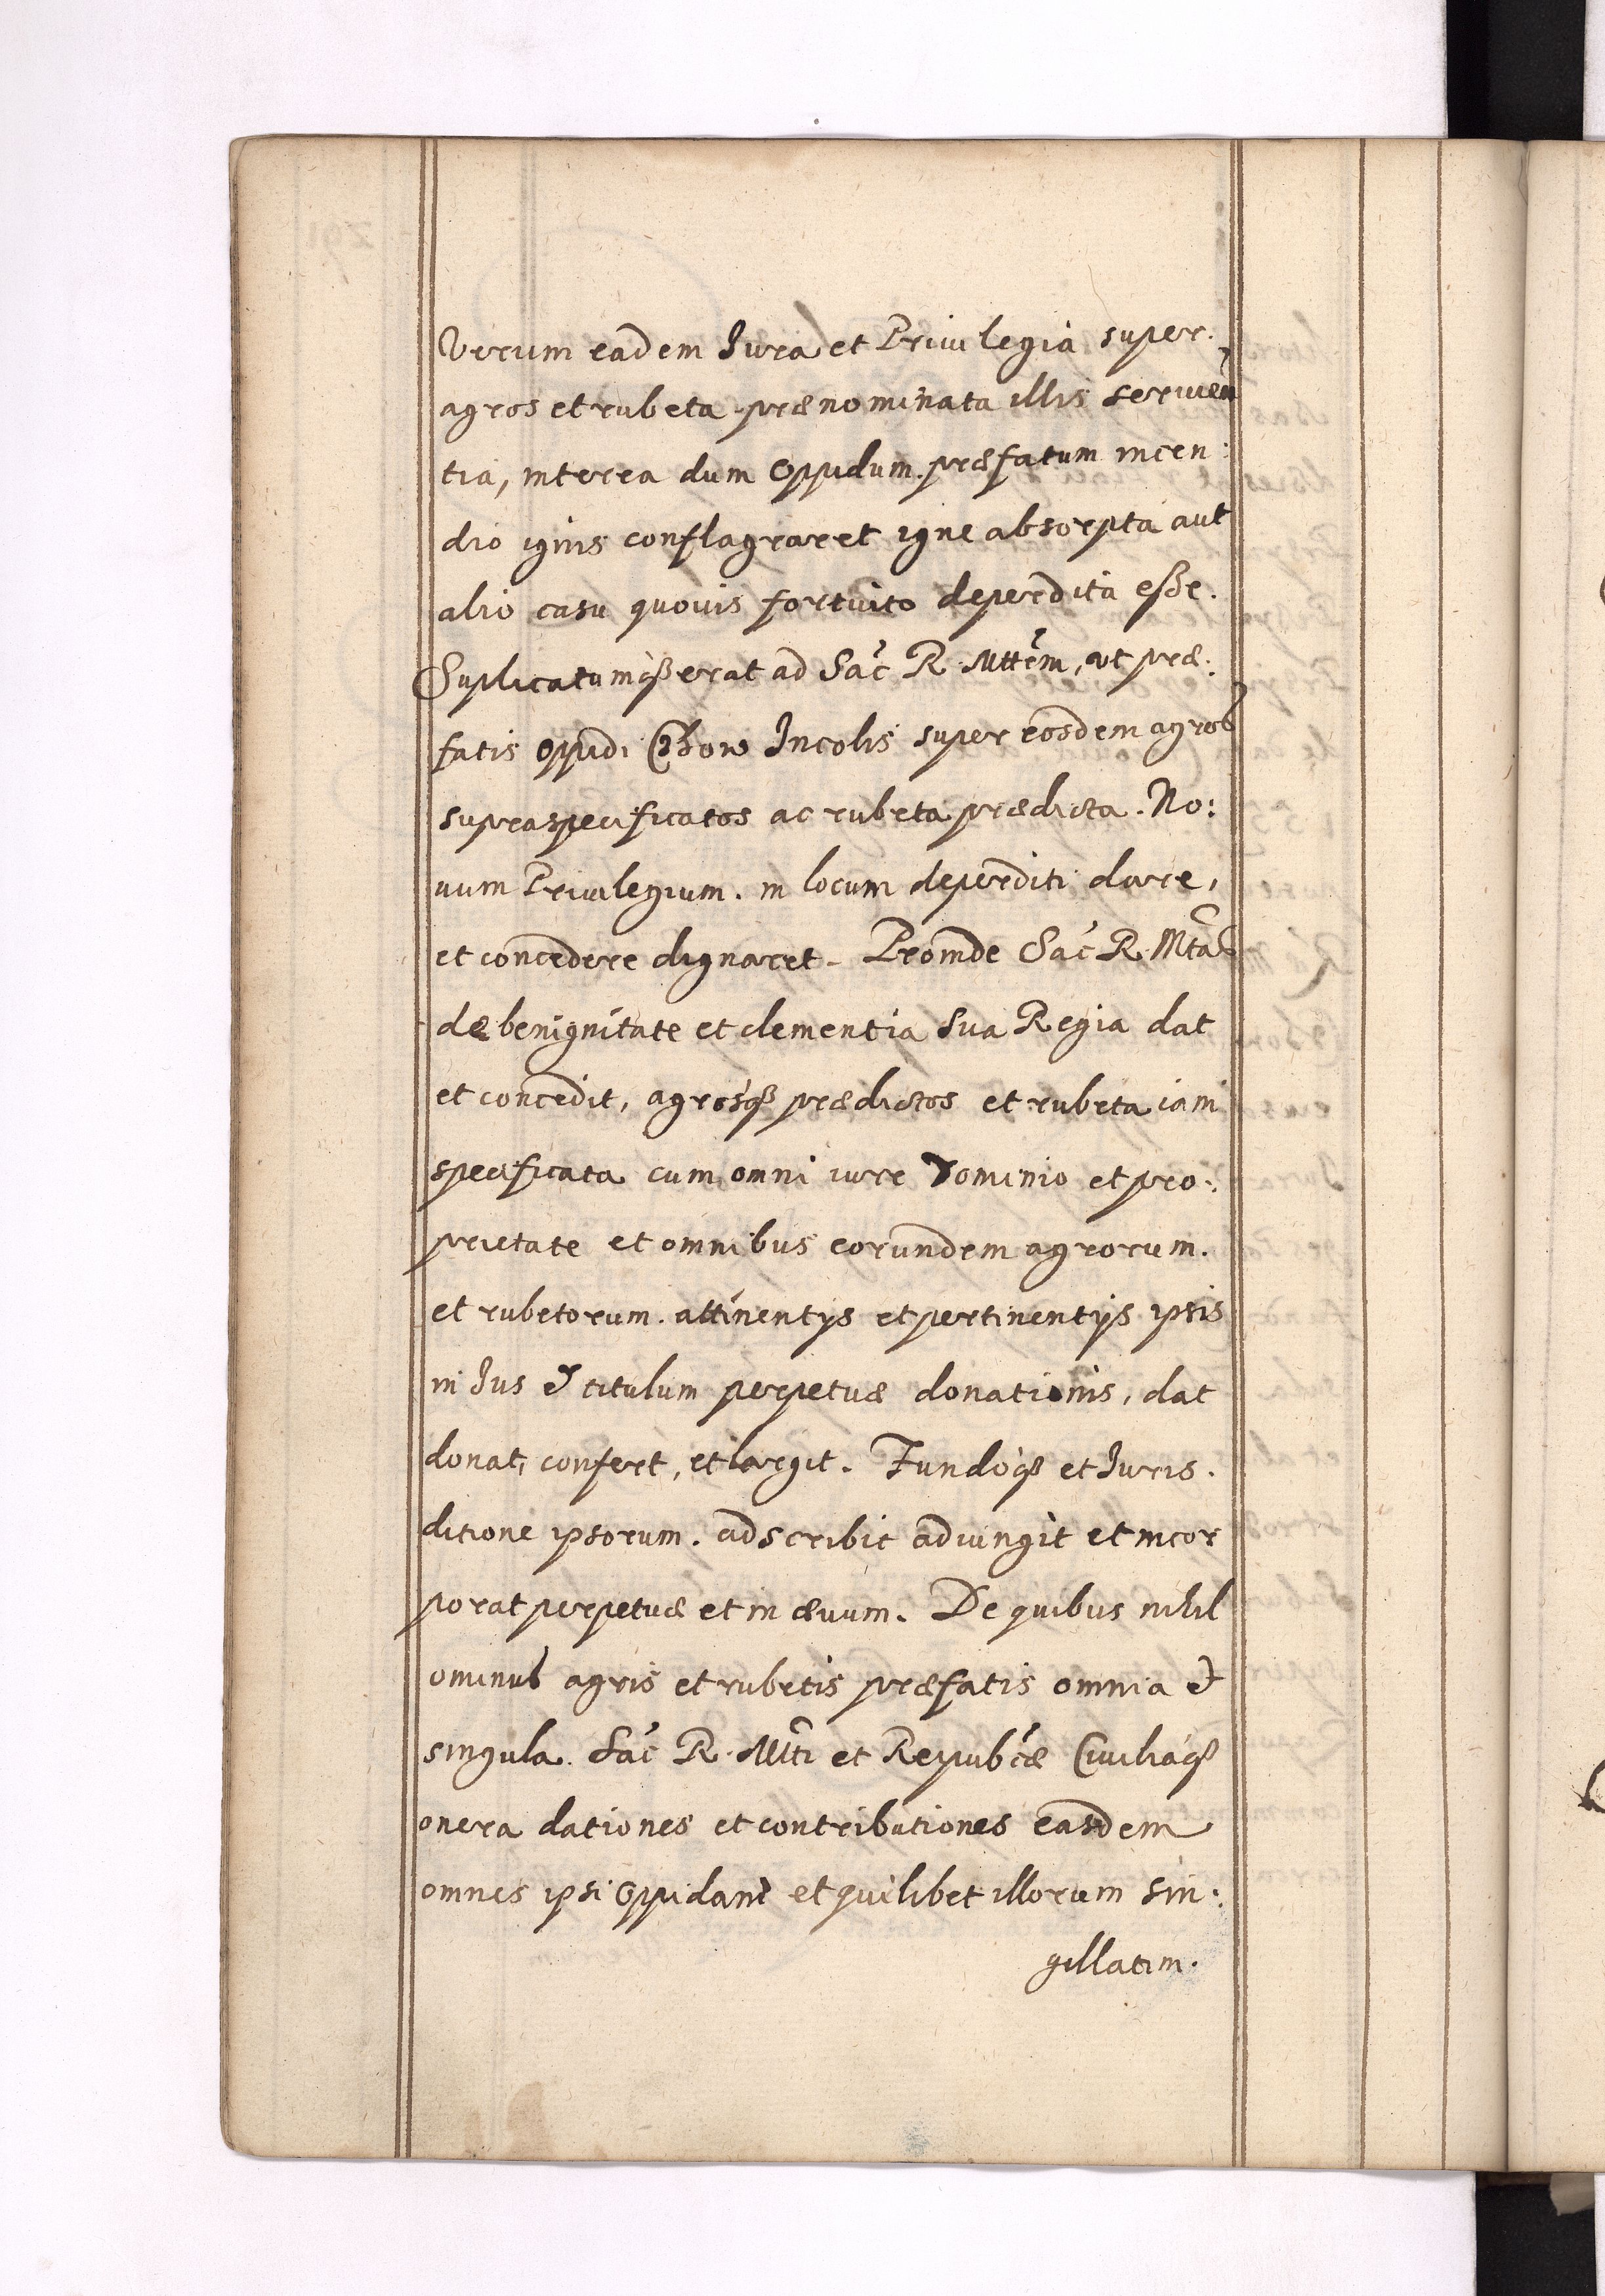 Verum eadem Iura et Priuilegia super.
agros et rubeta prænominata illis seruien
tia, interea dum Oppidum præfatum incen:
dio ignis conflagraret igne absorpta aut
alio casu quouis fortuito deperdita esse.
Suplicatumqȝ erat ad Sac̃ R Mttem, vt præ:
fatis oppidi Incolis super eosdem agros
supraspecificatos ac rubeta prædicta. No:
uum Priuilegium in locum deperditi dare,
et concedere dignaret. Proinde Sac̃ R. Mtas
de benignitate et clementia sua Regia dat
et concedit, agrosqȝ prædictos et rubeta iam
specificata cum omni iure Dominio et pro:
prietate et omnibus eorundem agrorum.
et rubetorum. attinentijs et pertinentijs ipsis
in Ius & titulum perpetuæ donationis, dat
donat, confert, et largit. Fundoqȝ et Iuris.
ditione ipsorum. adscribit adiungit et incor
porat perpetuæ et in æuum. De quibus nihil
ominus agris et rubetis præfatis omnia &
singula. Sac̃ R. Mtti et Repubcæ Ciuiliaqȝ
onera dationes et contributiones easdem
omnes ipsi Oppidani et quilibet illorum sin:
gillatim.